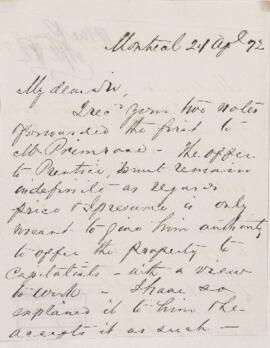 Montreal 24 Apl 72
My dear Sir,
I recd your two notes
forwarded the first to
Mr Primrose - The offer
to Prentice, must remain
indefinite as regards
price & I presume is only
meant to give him authority
to offer the property to
Capitalists - with a view
to work - I have so
explained it to him & he
accepts it as such -